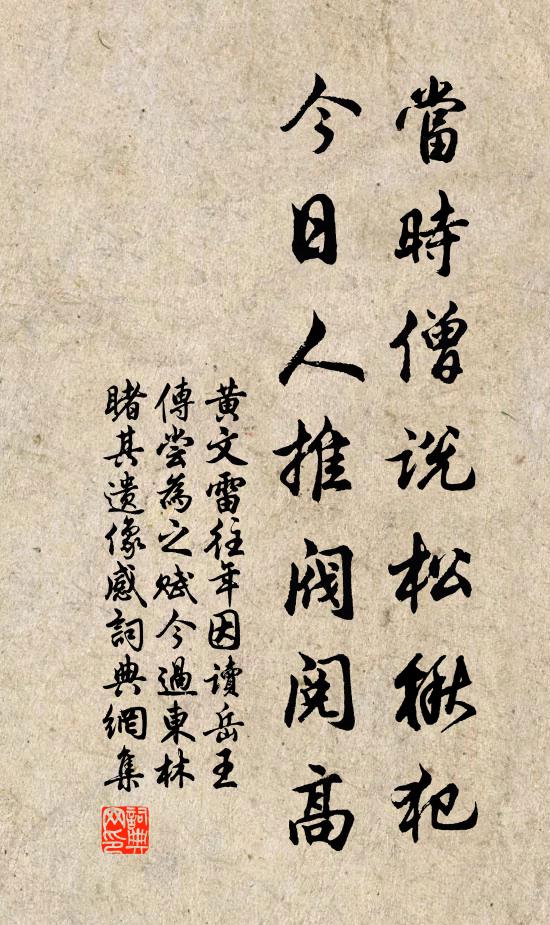 當時僧説松楸犯
今日人推閥閱高
黃文雷往年因讀岳王
傳嘗為之賦今過東林
睹其遺像感詞典網集
詞典网印